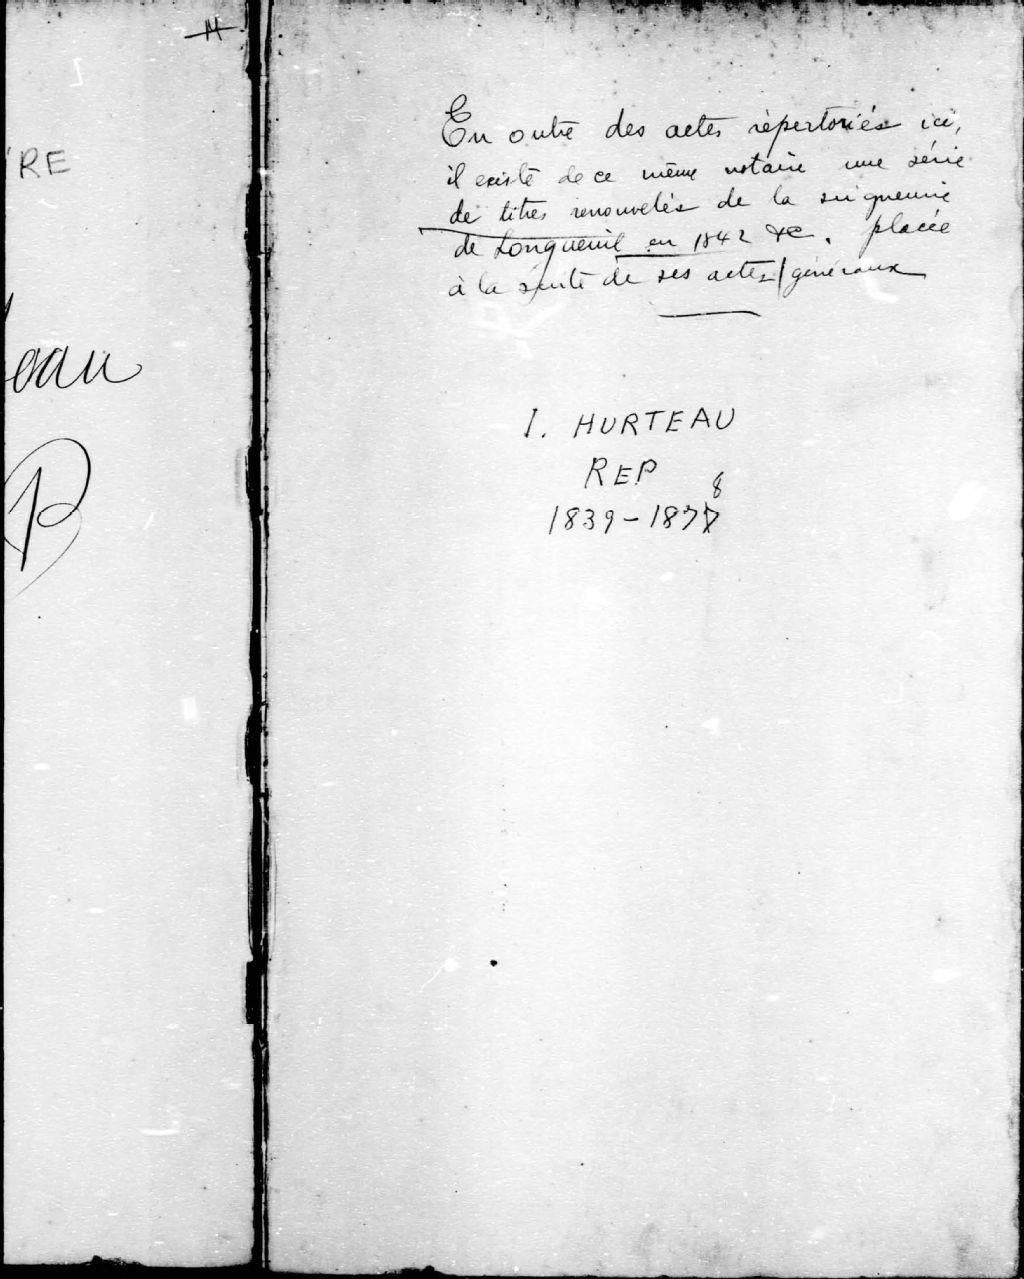 H
RE
eau
En outre des actes répertoriés ici,
il existe de ce même notaire une série
de titres renouvelés de la seigneurie
de Longueuil en 1842 &c. placée
à la suite de ses actes généraux
I. HURTEAU
REP
8
1839-1877